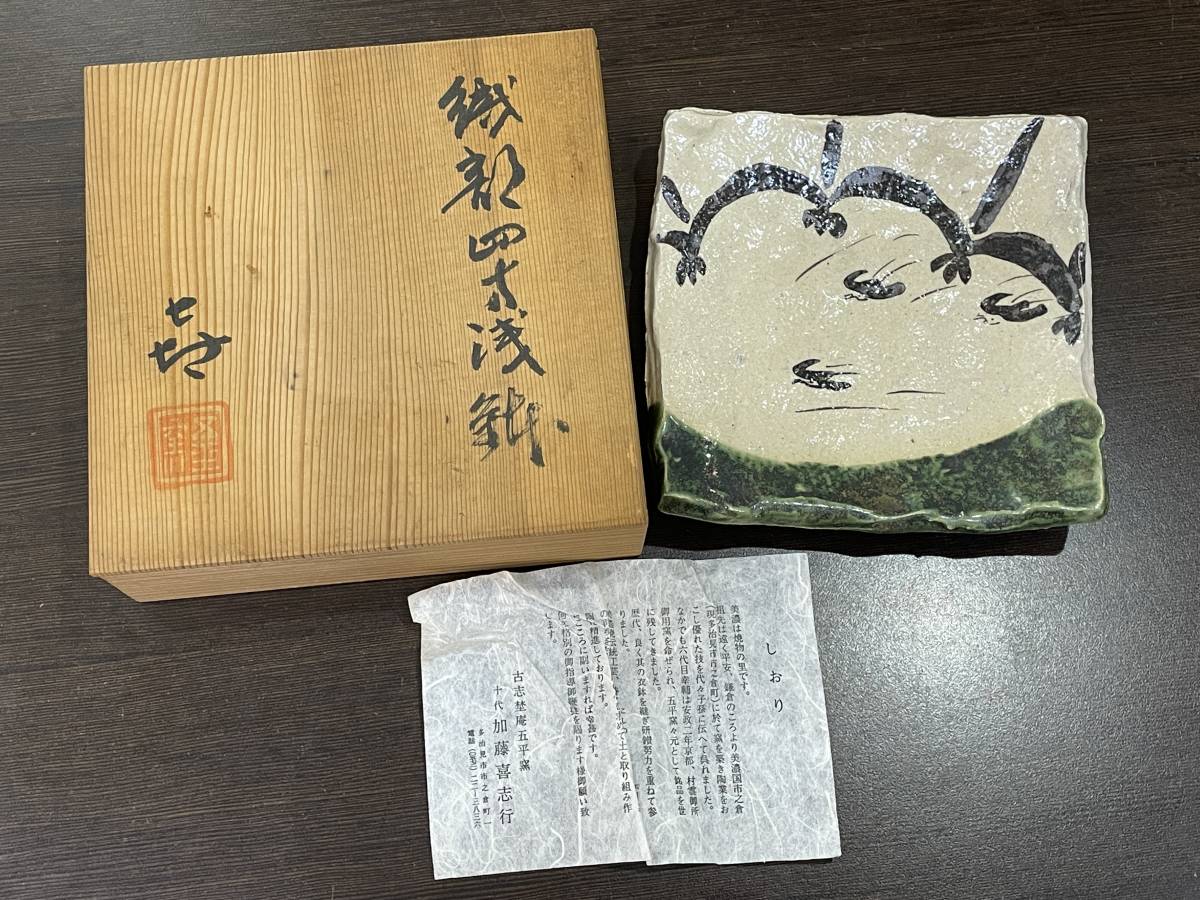 織部四方浅鉢
しおり
美濃は焼物の里です。
祖先は遠く平安、鎌倉のころより美濃国市之倉
(現多治見市市之倉町)に於て窯を築き陶業をお
こし優れた技を代々子孫に伝へて呉れました。
なかでも六代目幸輔は安政二年京都、村雲御所
御用窯を命ぜられ、五平窯々元として銘品を世
に残してきました。
歴代、良く其の衣鉢を継ぎ研鑽努力を重ねて参
りました。
土と取り組み作
陶に精進しております。
こころに副いますれば幸甚です。
格別の御指導御鞭撻を賜ります様御願い致
します。
古志埜庵五平窯
十代 加藤喜志行
多治見市市之倉町一
電話
二二―三八三六